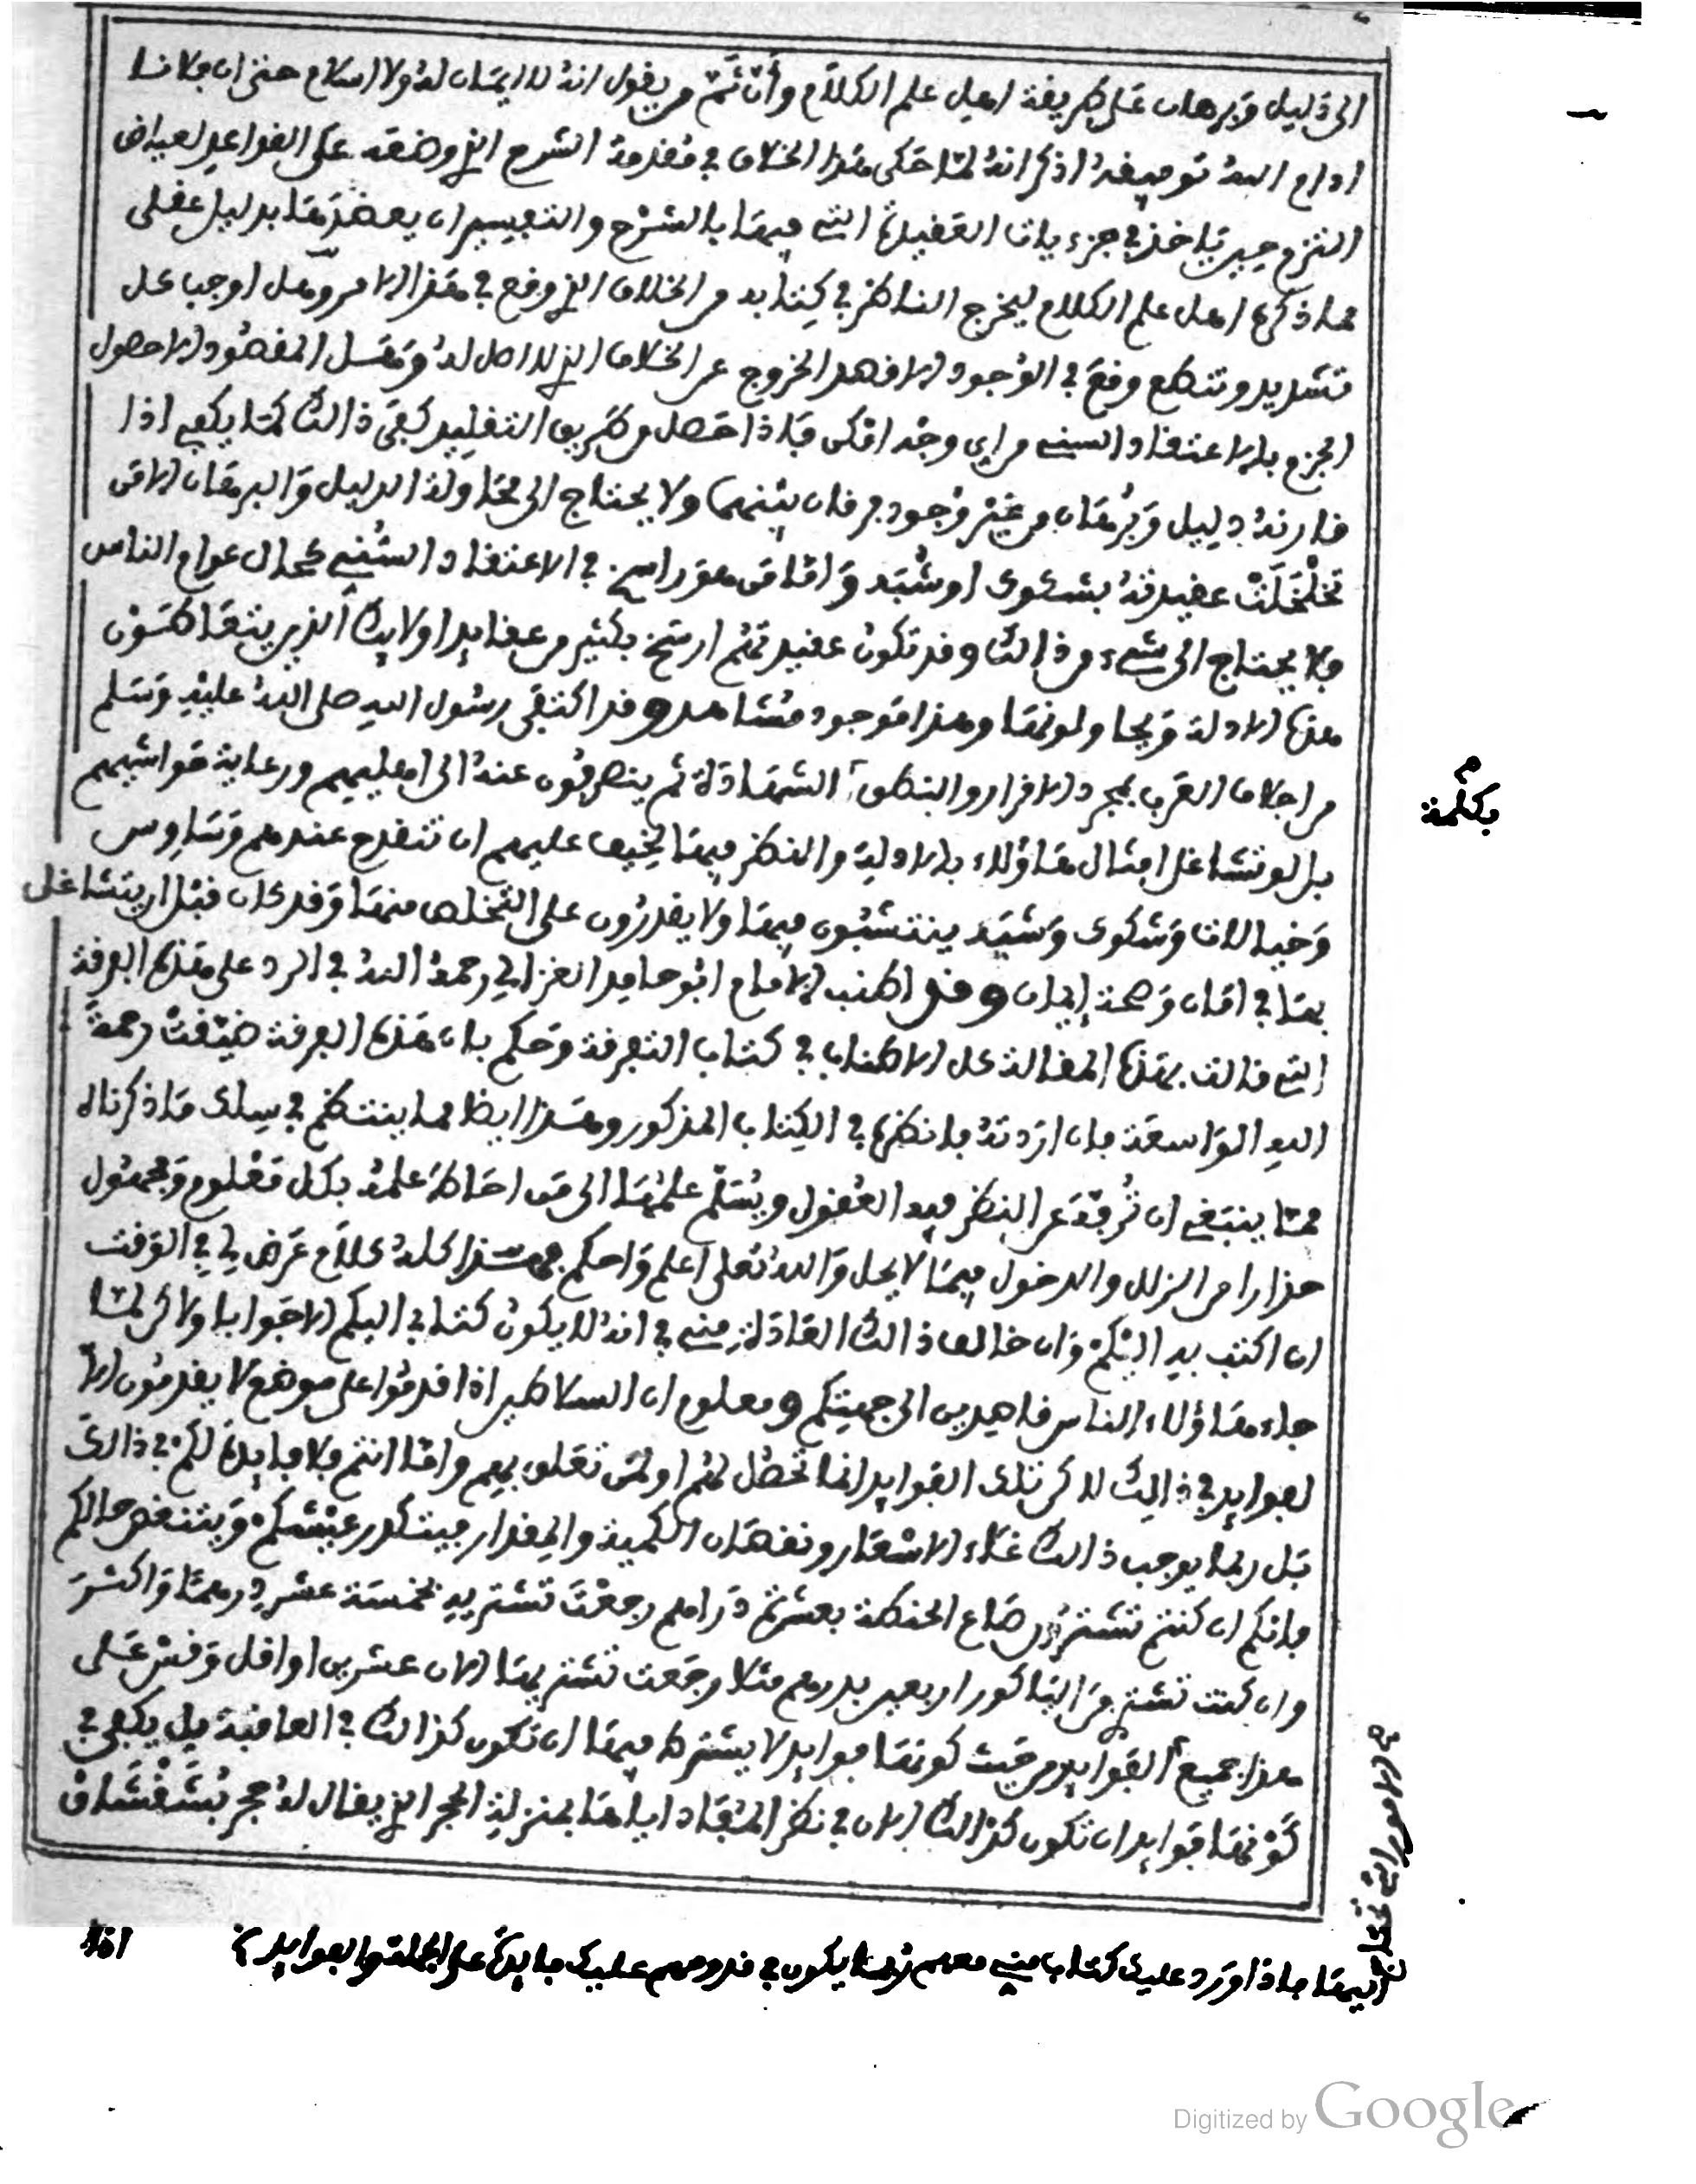 الى دليل وبرهان على طريقة اهل علم الكلام وأن ثم من يقول انه لا ايمان له ولا اسلام حتى ان فلانا
ادام الله توفيقه اذكر انه لما حكى هذا الخلاف في مقدمة الشرح الذي وضعه على القواعد لعياض
التزم حين ياخذ في جزءيات العقيدة التي فيها بالشرح والتفسير ان يعضدها بدليل عقلي
مما ذكره اهل علم الكلام ليخرج الناظر في كتابه من الخلاف الذي وقع في هذا الامر وهل اوجب على
تشديد وتنطع وقع في الوجود الا قصد الخروج عن الخلاف الذي لا اصل له وهل المقصود الا حصول
الجزم بالاعتقاد السني من اي وجه امكن فاذا حصل من طريق التقليد كفى ذالك كما يكفي اذا
قارنه دليل وبرهان من غير وجود فرقان بينهما ولا يحتاج الى محاولة الدليل والبرهان الا من
تخلخلت عقيدته بشكوك او شبه واما من هو راسخ في الاعتقاد السني كحال عوام الناس
فلا يحتاج الى شيء من ذالك وقد تكون عقيدتهم ارسخ بكثير من عقايد اولايك الذين يتعاطون
هذه الادلة ويحاولونها وهذا موجود مشاهد وقد اكتفى رسول الله صلى الله عليه وسلم
من اجلاف العرب بمجرد الاقرار والنطق الشهادة ثم ينصرفون عنه الى اهليهم ورعاية مواشيهم
بكلمة
بل لو تشاغل امثال هاؤلاء بالادلة والنظر فيها لخيف عليهم ان تنقدح عندهم وساوس
وخيالات وشكوك وشبه ينتشبون فيها ولا يقدرون على التخلص منها وقد كان قبل ان يتشاغل
بها في امان وصحة إيمان وقد اطنب الامام ابو حامد الغزالي رحمه الله في الرد على هذه الفرقة
التي قالت بهذه المقالة كل الاطناب في كتاب التفرقة وحكم بان هذه الفرقة ضيقت رحمة
الله الواسعة فان اردته فانظره في الكتاب المذكور وهذا ايضا مما ينتظم في سلك ما ذكرناه
مما ينبغي ان تُرفّه عن النظر فيه العقول ويسلم علمها الى من احاط علمه بكل معلوم ومجهول
حذارا من الزلل والدخول فيما لا يحل والله تعلى اعلم واحكم فهذا كله كلام عرض لي في الوقت
ان اكتب به اليكم وان خالف ذالك العادة مني في انه لا يكون كتابي اليكم الا جوابا ولاكن لما
جاء هاؤلاء الناس قاصدين الى جهتكم ومعلوم ان السلاطين اذا قدموا على موضع لا يقدمون الا
لفوايد في ذالك لاكن تلك الفوايد انما تحصل لهم او لمن تعلق بهم واما انتم فلا فايدة لكم في ذالك
بل ربما يوجب ذالك غلاء الاسعار ونقصان الكمية والمقدار فيتكدر عيشكم ويتنغص حالكم
فانكم ان كنتم تشترون صاع الحنطة بعشرة دراهم رجعت تشتريه بخمسة عشر درهما واكثر
وان كنت تشتري من الباكور اربعين بدرهم مثلا رجعت تشتريها الان عشرين او اقل وقس على
هذا جميع الفوايد من حيث كونها فوايد لا يشترط فيها ان تكون كذالك في العاقبة بل يكفي في
كونها فوايد ان تكون كذالك الان في نظر المفاد اياها بمنزلة الحجر الذي يقال له حجر بُشَقْشَاق
اليها فاذا ورد عليك كتاب مني معهم ربما يكون في قدومهم عليك فايدة على الجملة والفوايد في
الامور التي تحتاج
اذا